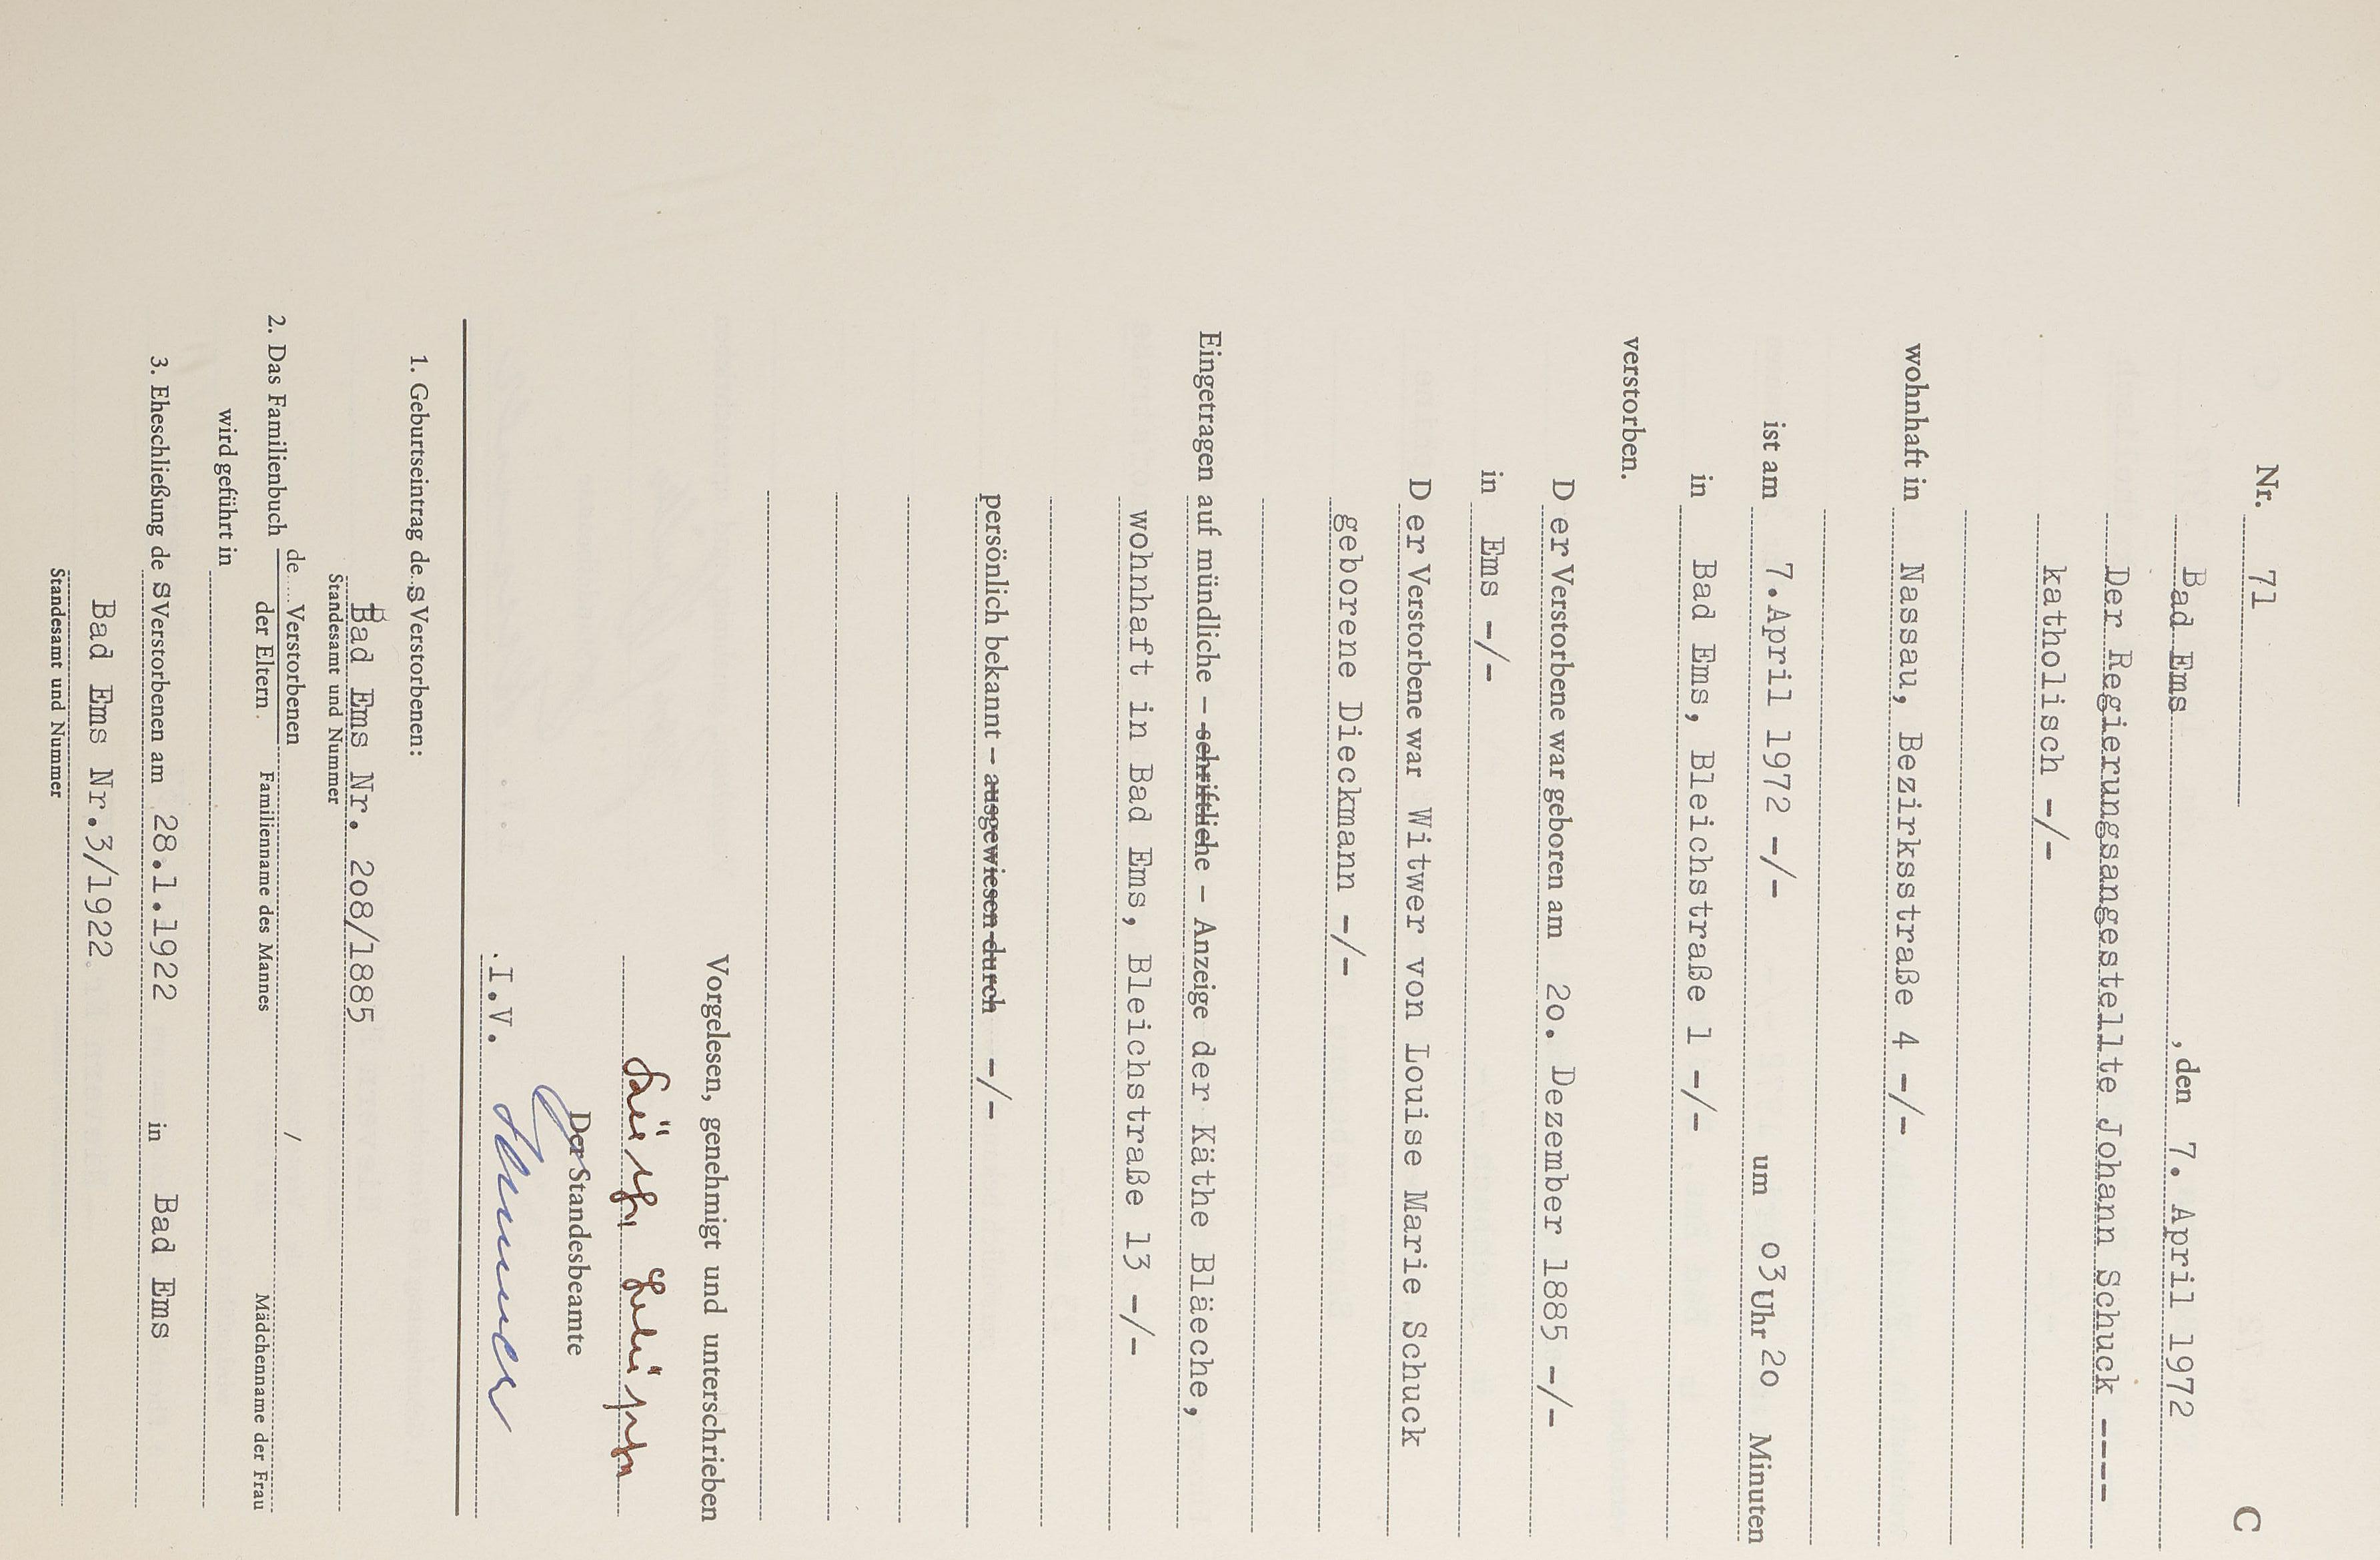 C
Nr. 71
Bad Ems, den 7. April 1972
Der Regierungsangestellte Johann Schuck ----
katholisch -/-
wohnhaft in Nassau, Bezirksstraße 4 -/-
ist am 7.April 1972 -/- um o3 Uhr 2o Minuten
in Bad Ems, Bleichstraße 1 -/-
verstorben.
D er Verstorbene war geboren am 2o. Dezember 1885 -/-
in Ems -/-
D er Verstorbene war Witwer von Louise Marie Schuck
geborene Dieckmann -/-
Eingetragen auf mündliche – schriftliche – Anzeige der Käthe Bläeche,
wohnhaft in Bad Ems, Bleichstraße 13 -/-
persönlich bekannt – ausgewiesen durch -/-
Vorgelesen, genehmigt und unterschrieben
Der Standesbeamte
.I.V.
1. Geburtseintrag de s Verstorbenen:
Bad Ems Nr. 2o8/1885
Standesamt und Nummer
2. Das Familienbuch de.... Verstorbenen /
der Eltern Familienname des Mannes Mädchenname der Frau
wird geführt in
3. Eheschließung de s Verstorbenen am 28.1.1922 in Bad Ems
Bad Ems Nr.3/1922
Standesamt und Nummer